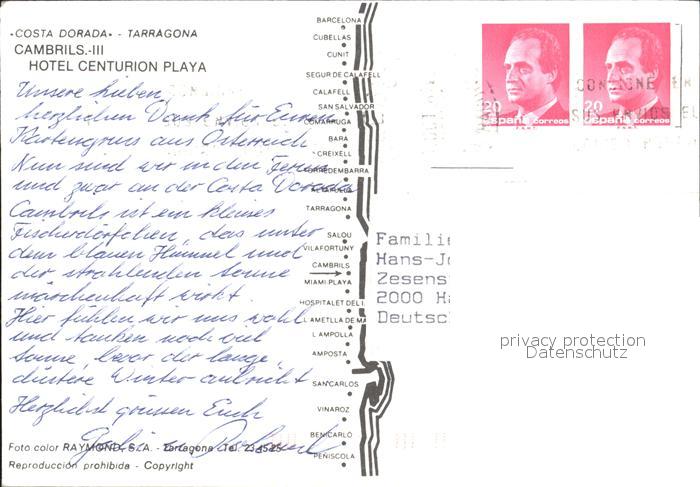 «COSTA DORADA» - TARRAGONA
CAMBRILS.-III
HOTEL CENTURION PLAYA
Unsere lieben,
herzlichen Dank für Euren
Kartengruss aus Österreich
Nun sind wir in den Ferien
und zwar an der Costa Dorada
Cambrils ist ein kleines
Fischerdörfchen, das unter
dem blauen Himmel und
der strahlenden Sonne
märchenhaft wirkt.
Hier fühlen wir uns wohl
und tanken noch viel
Sonne, bevor der lange,
düstere Winter anbricht
Herzlichst grüssen Euch
Foto color RAYMOND, S.A. - Tarragona Tel.
Reproducción prohibida - Copyright
BARCELONA
CUBELLAS
CUNIT
SEGUR DE CALAFELL
CALAFELL
SAN SALVADOR
COMARRUGA
BARA
CREIXELL
TORREDEMBARRA
ALTAFULLA
TARRAGONA
SALOU
VILAFORTUNY
CAMBRILS
MIAMI PLAYA
HOSPITALET DEL I
LAMETLLA DE MA
L AMPOLLA
AMPOSTA
SAN CARLOS
VINAROZ
BENICARLO
PEÑISCOLA
20
españa correos
20
españa correos
CONSIGNE
Familie
Hans-Jo
Zesens
2000 Ha
Deutsc
privacy protection
Datenschutz